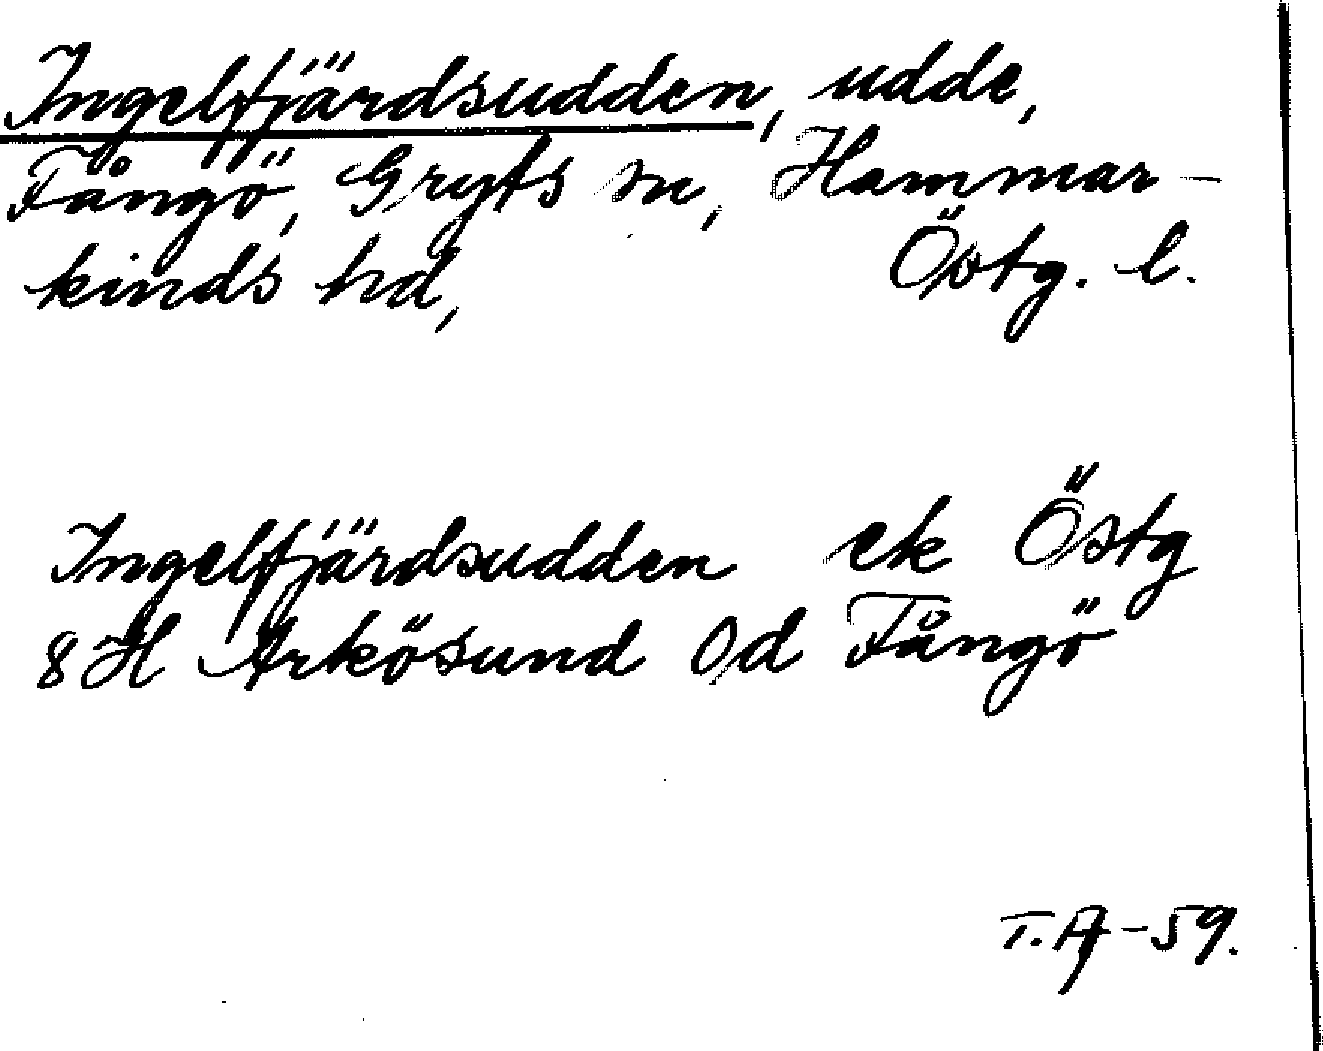 Ingelfjärdsudden, udde,
Fångö, Gryts sn, Hammar-
kinds hd, Östg. l.
Ingelfjärdsudden ek Östg
8H Arkösund Od Fångö
T.A-59.